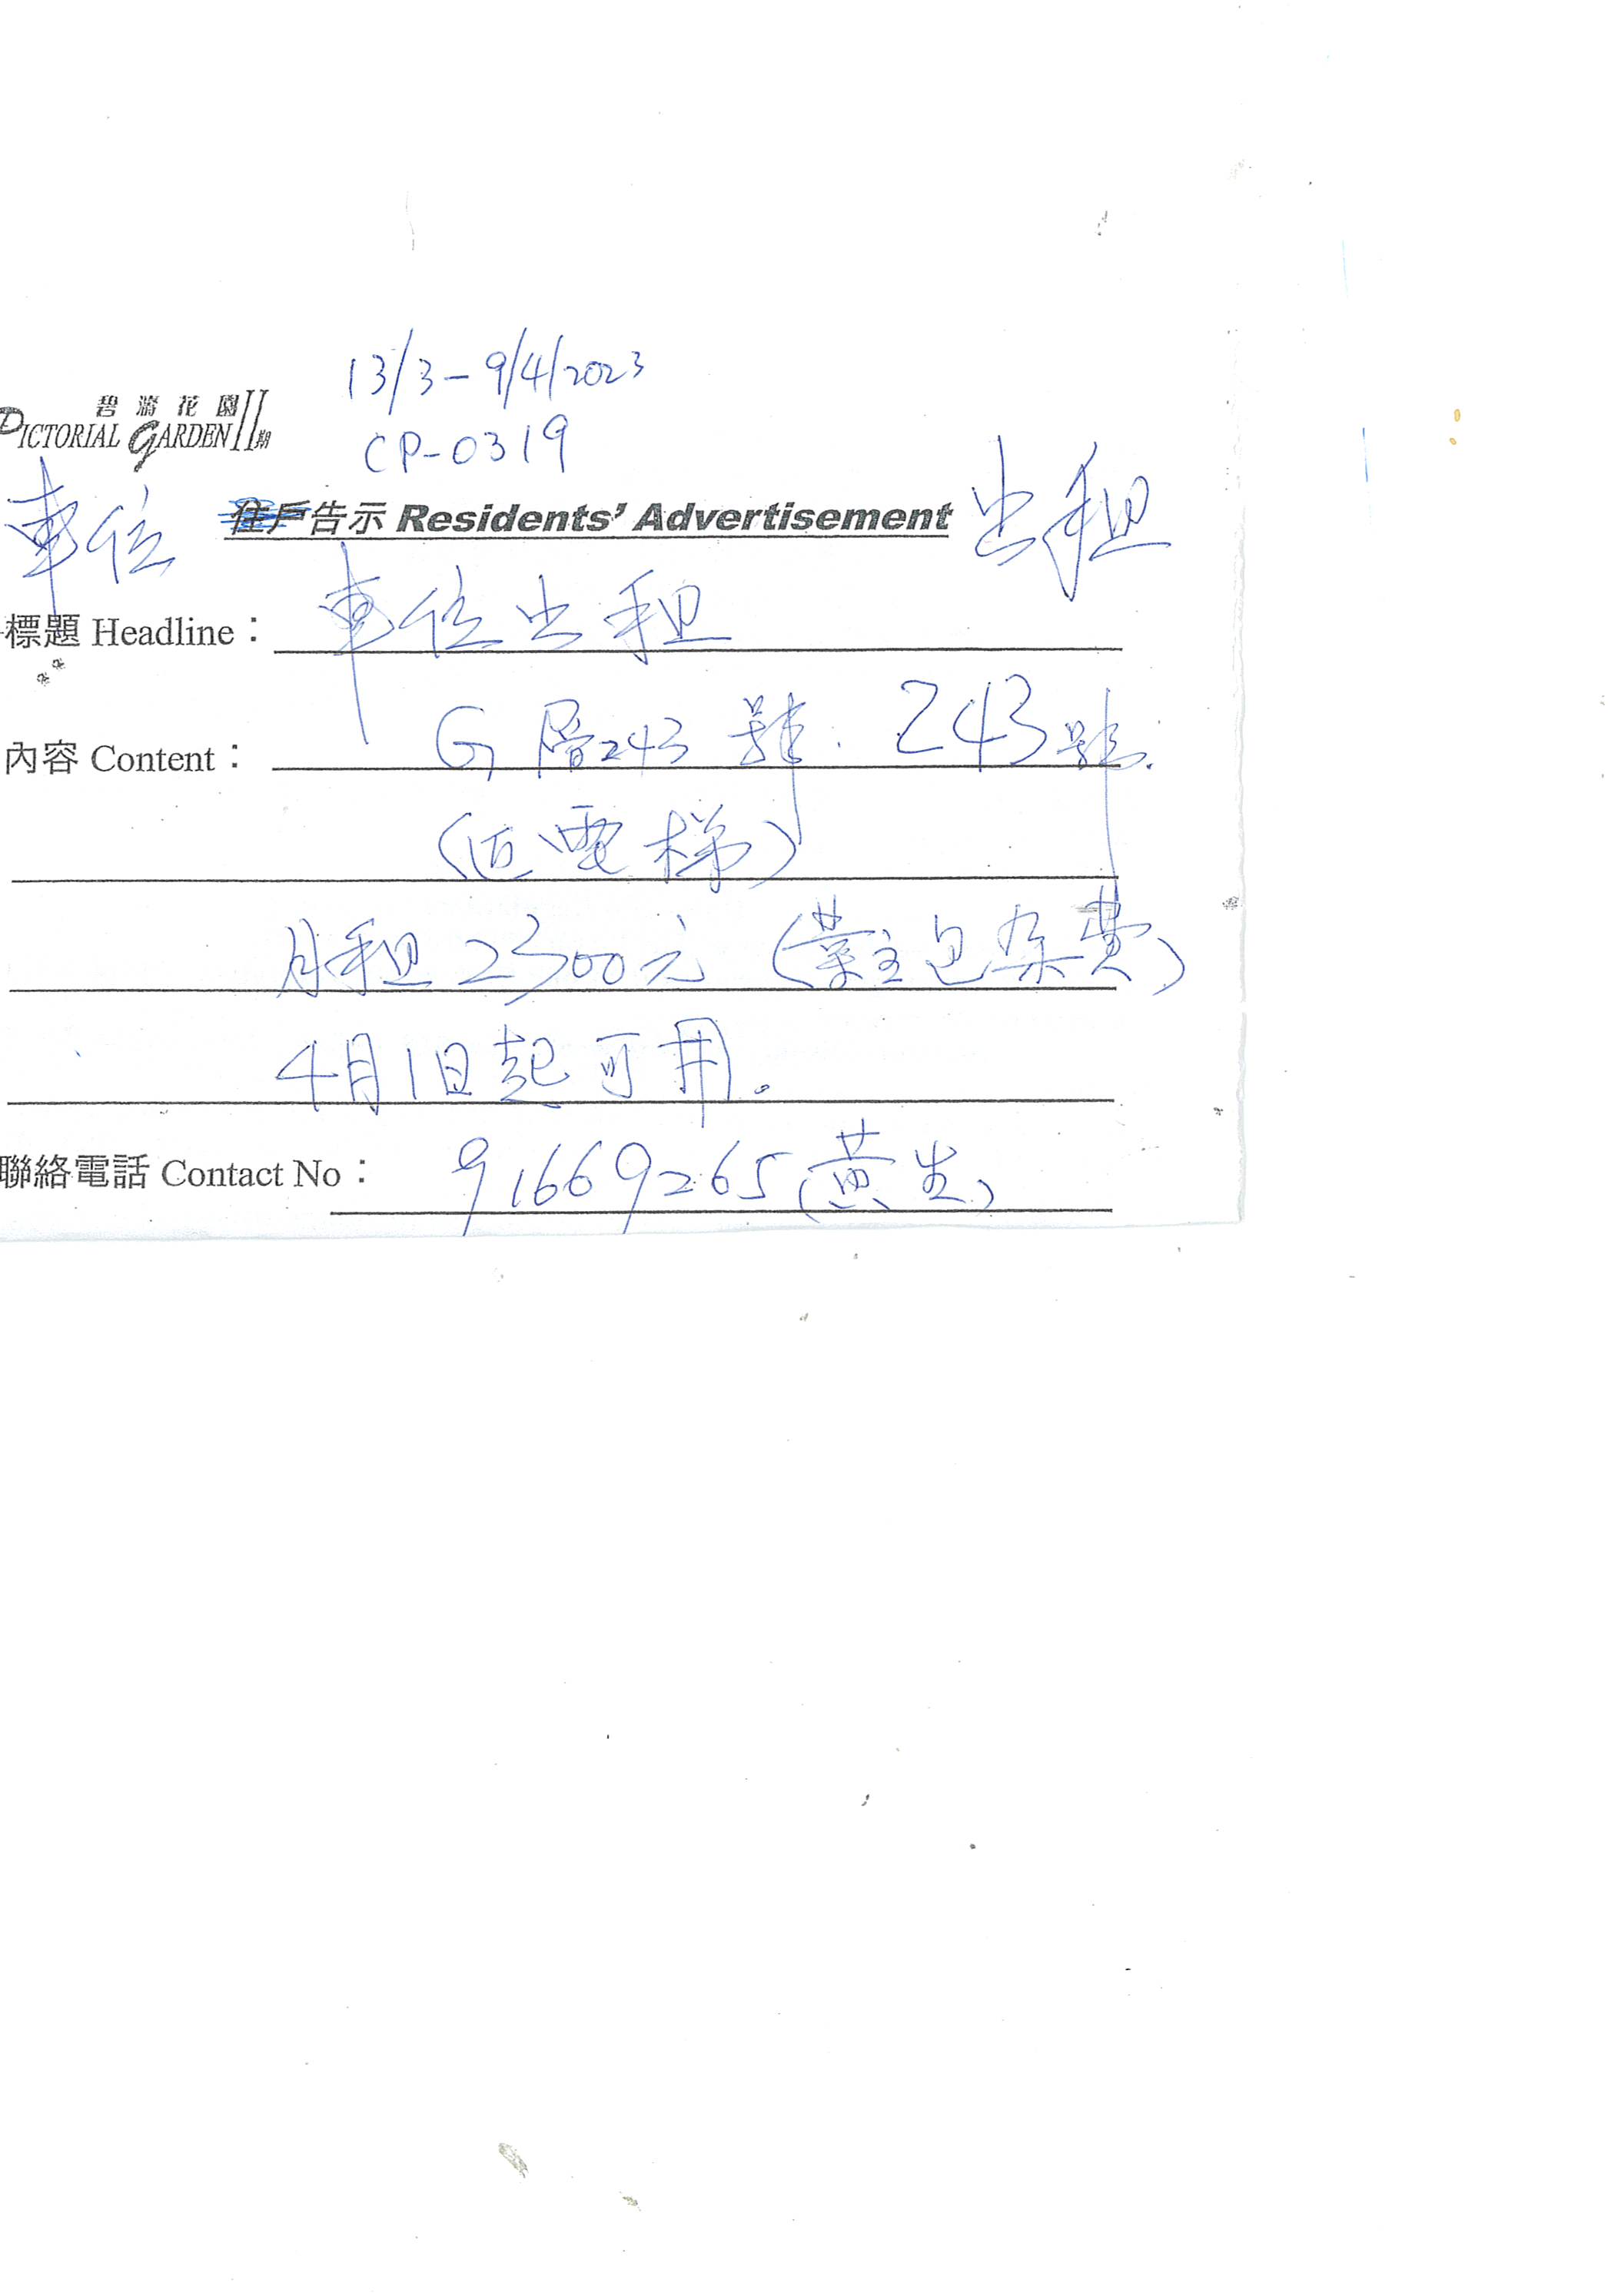 13/3-9/4/2023
碧濤花園II期
PICTORIAL GARDEN
CP-0319
車位 住戶告示 Residents' Advertisement 出租
標題 Headline： 車位出租
內容 Content： G層243號. 243號.
(近電梯)
月租2300元 (業主包杂費)
4月1日起可用。
聯絡電話 Contact No： 91669265(黃生)